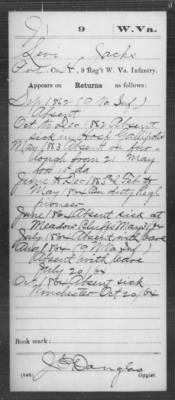 J 9 W. Va.
Levi Jacks
Pvt., Co. H, 9 Reg't W. Va. Infantry.
Appears on Returns as follows:
Sep 1862
Absent
Oct & Dec 1862 Absent
sick in Hosp Gallipolis
May 1863 Absent on fur
lough from 21 May
for 15 da
June & Dec 1863 & Feb to
May 1864 On duty Regl
pioneer
June 1864 Absent sick at
Meadow Bluffs May 24
July 1864 Absent with leave
Aug 1864
Absent with leave
July 20/64
Oct 1864 Absent sick
Winchester Oct 20/64
Book mark:
(546) J. B. Douglas
Copyist.